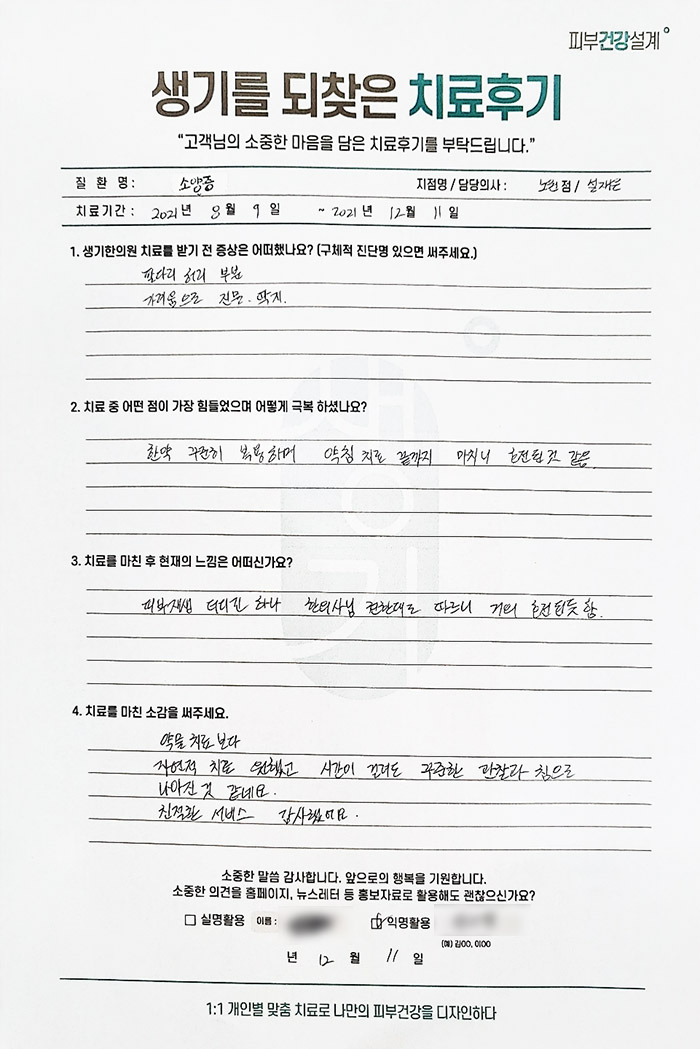 피부건강설계
생기를 되찾은 치료후기
“고객님의 소중한 마음을 담은 치료후기를 부탁드립니다.”
질 환 명 : 소양증 지점명 / 담당의사 : 노원점 / 설재은
치료기간 : 2021년 8월 9일 ~ 2021년 12월 11일
1. 생기한의원 치료를 받기 전 증상은 어떠했나요? (구체적 진단명 있으면 써주세요.)
팔다리 허리 부분
가려움으로 진물. 딱지.
2. 치료 중 어떤 점이 가장 힘들었으며 어떻게 극복 하셨나요?
한약 꾸준히 복용하며 약침 치료 끝까지 마치니 호전된것 같음.
3. 치료를 마친 후 현재의 느낌은 어떠신가요?
피부재생 더디긴 하나 한의사님 권한대로 따르니 거의 호전된듯 함.
4. 치료를 마친 소감을 써주세요.
약물 치료 보다
자연적 치료 원했고 시간이 걸려도 꾸준한 관찰과 침으로
나아진 것 같네요.
친절한 서비스 감사했어요.
소중한 말씀 감사합니다. 앞으로의 행복을 기원합니다.
소중한 의견을 홈페이지, 뉴스레터 등 홍보자료로 활용해도 괜찮으신가요?
실명활용 이름 : 익명활용
(예) 김OO, 이OO
년 12 월 11 일
1:1 개인별 맞춤 치료로 나만의 피부건강을 디자인하다